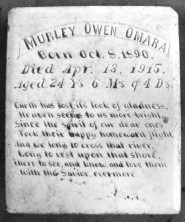 MURLEY OWEN OMARA
Born Oct. 8, 1890.
Died Apr. 13, 1915.
Aged 24 Ys 6 Ms of 4 Ds.
Earth has lost its look of gladness.
Heaven seems to us more bright
Since the spirit of our dear ones
Took their happy homeward flight.
And we long to cross that river,
Long to rest upon that shore,
There to see, and know, and love them
With the Savior, evermore.